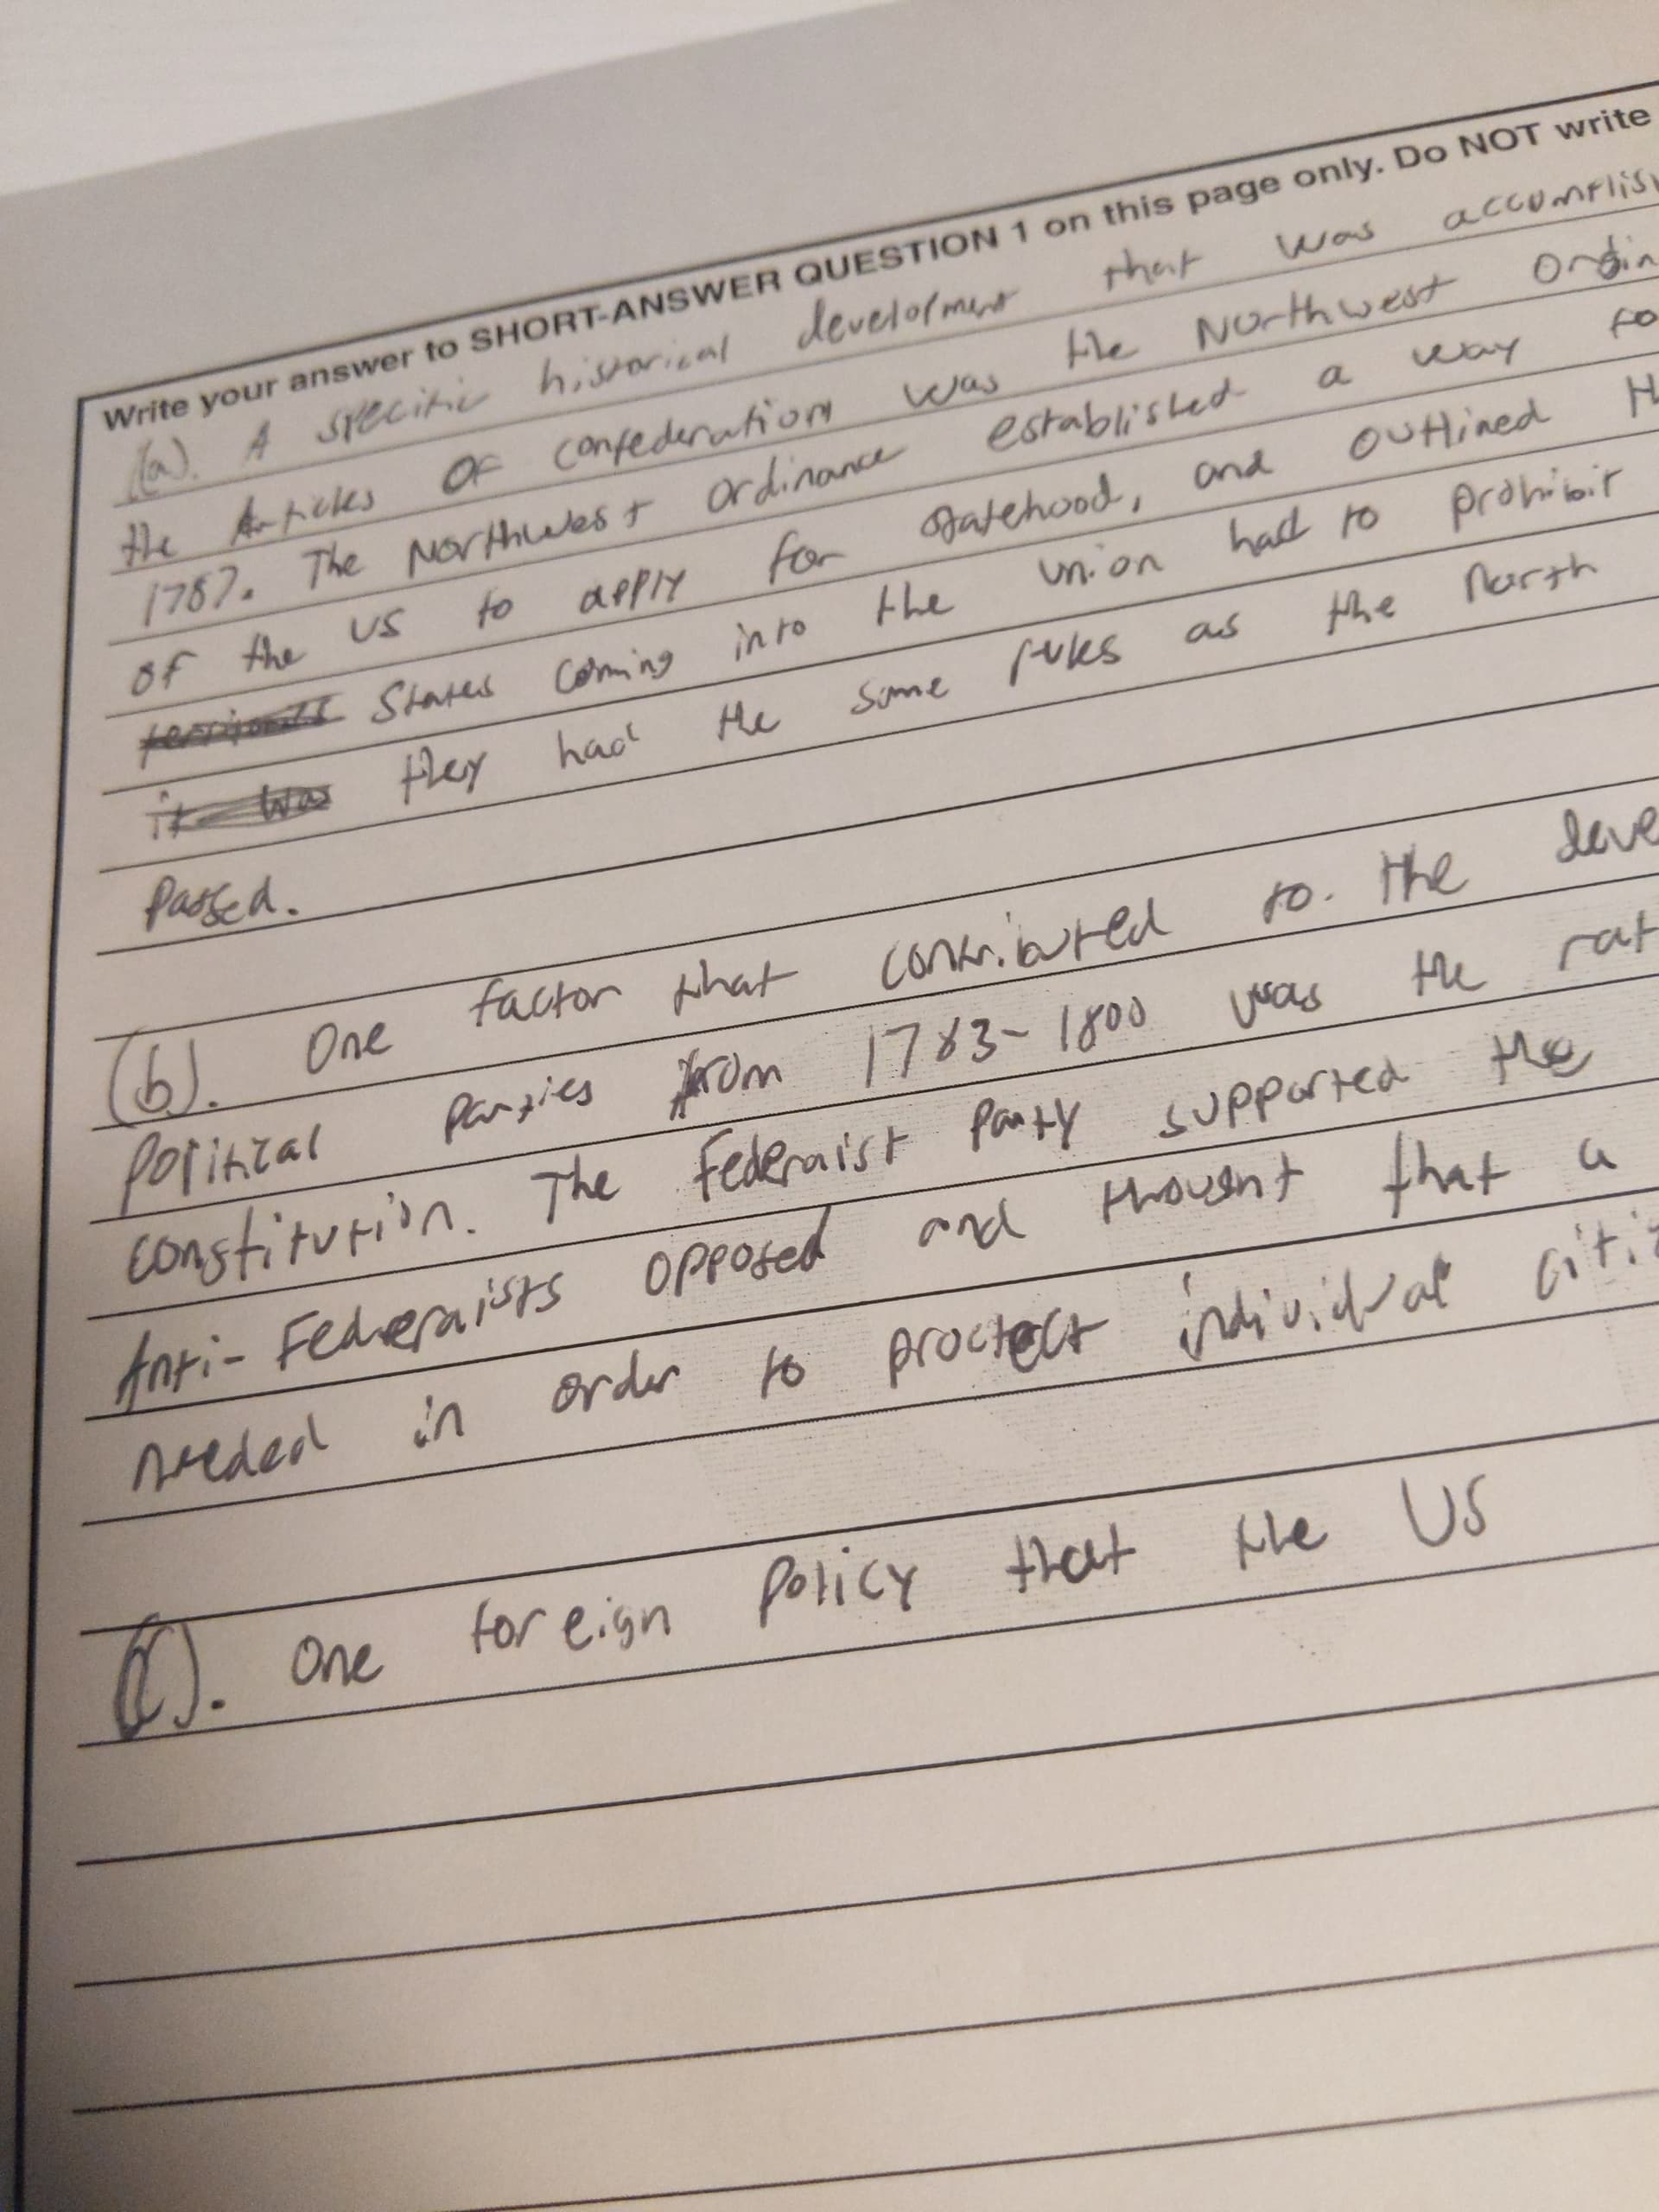 Write your answer to SHORT-ANSWER QUESTION 1 on this page only. Do NOT write
(a). A specific historical development that was accomplis
the Articles OF confederation was the Northwest Ordin
1787. The Northwest Ordinance established a way fo
of the US to apply for statehood, and outlined th
territories States coming into the union had to prohibit
it was they had the same rules as the North
passed.
(b). One factor that contributed to the deve
political parties from 1783-1800 was the rat
constitution. The Federaist Party supported the
Anti-Federaists opposed and thought that a
needed in order to proctect individual citiz
(C). One foreign policy that the US